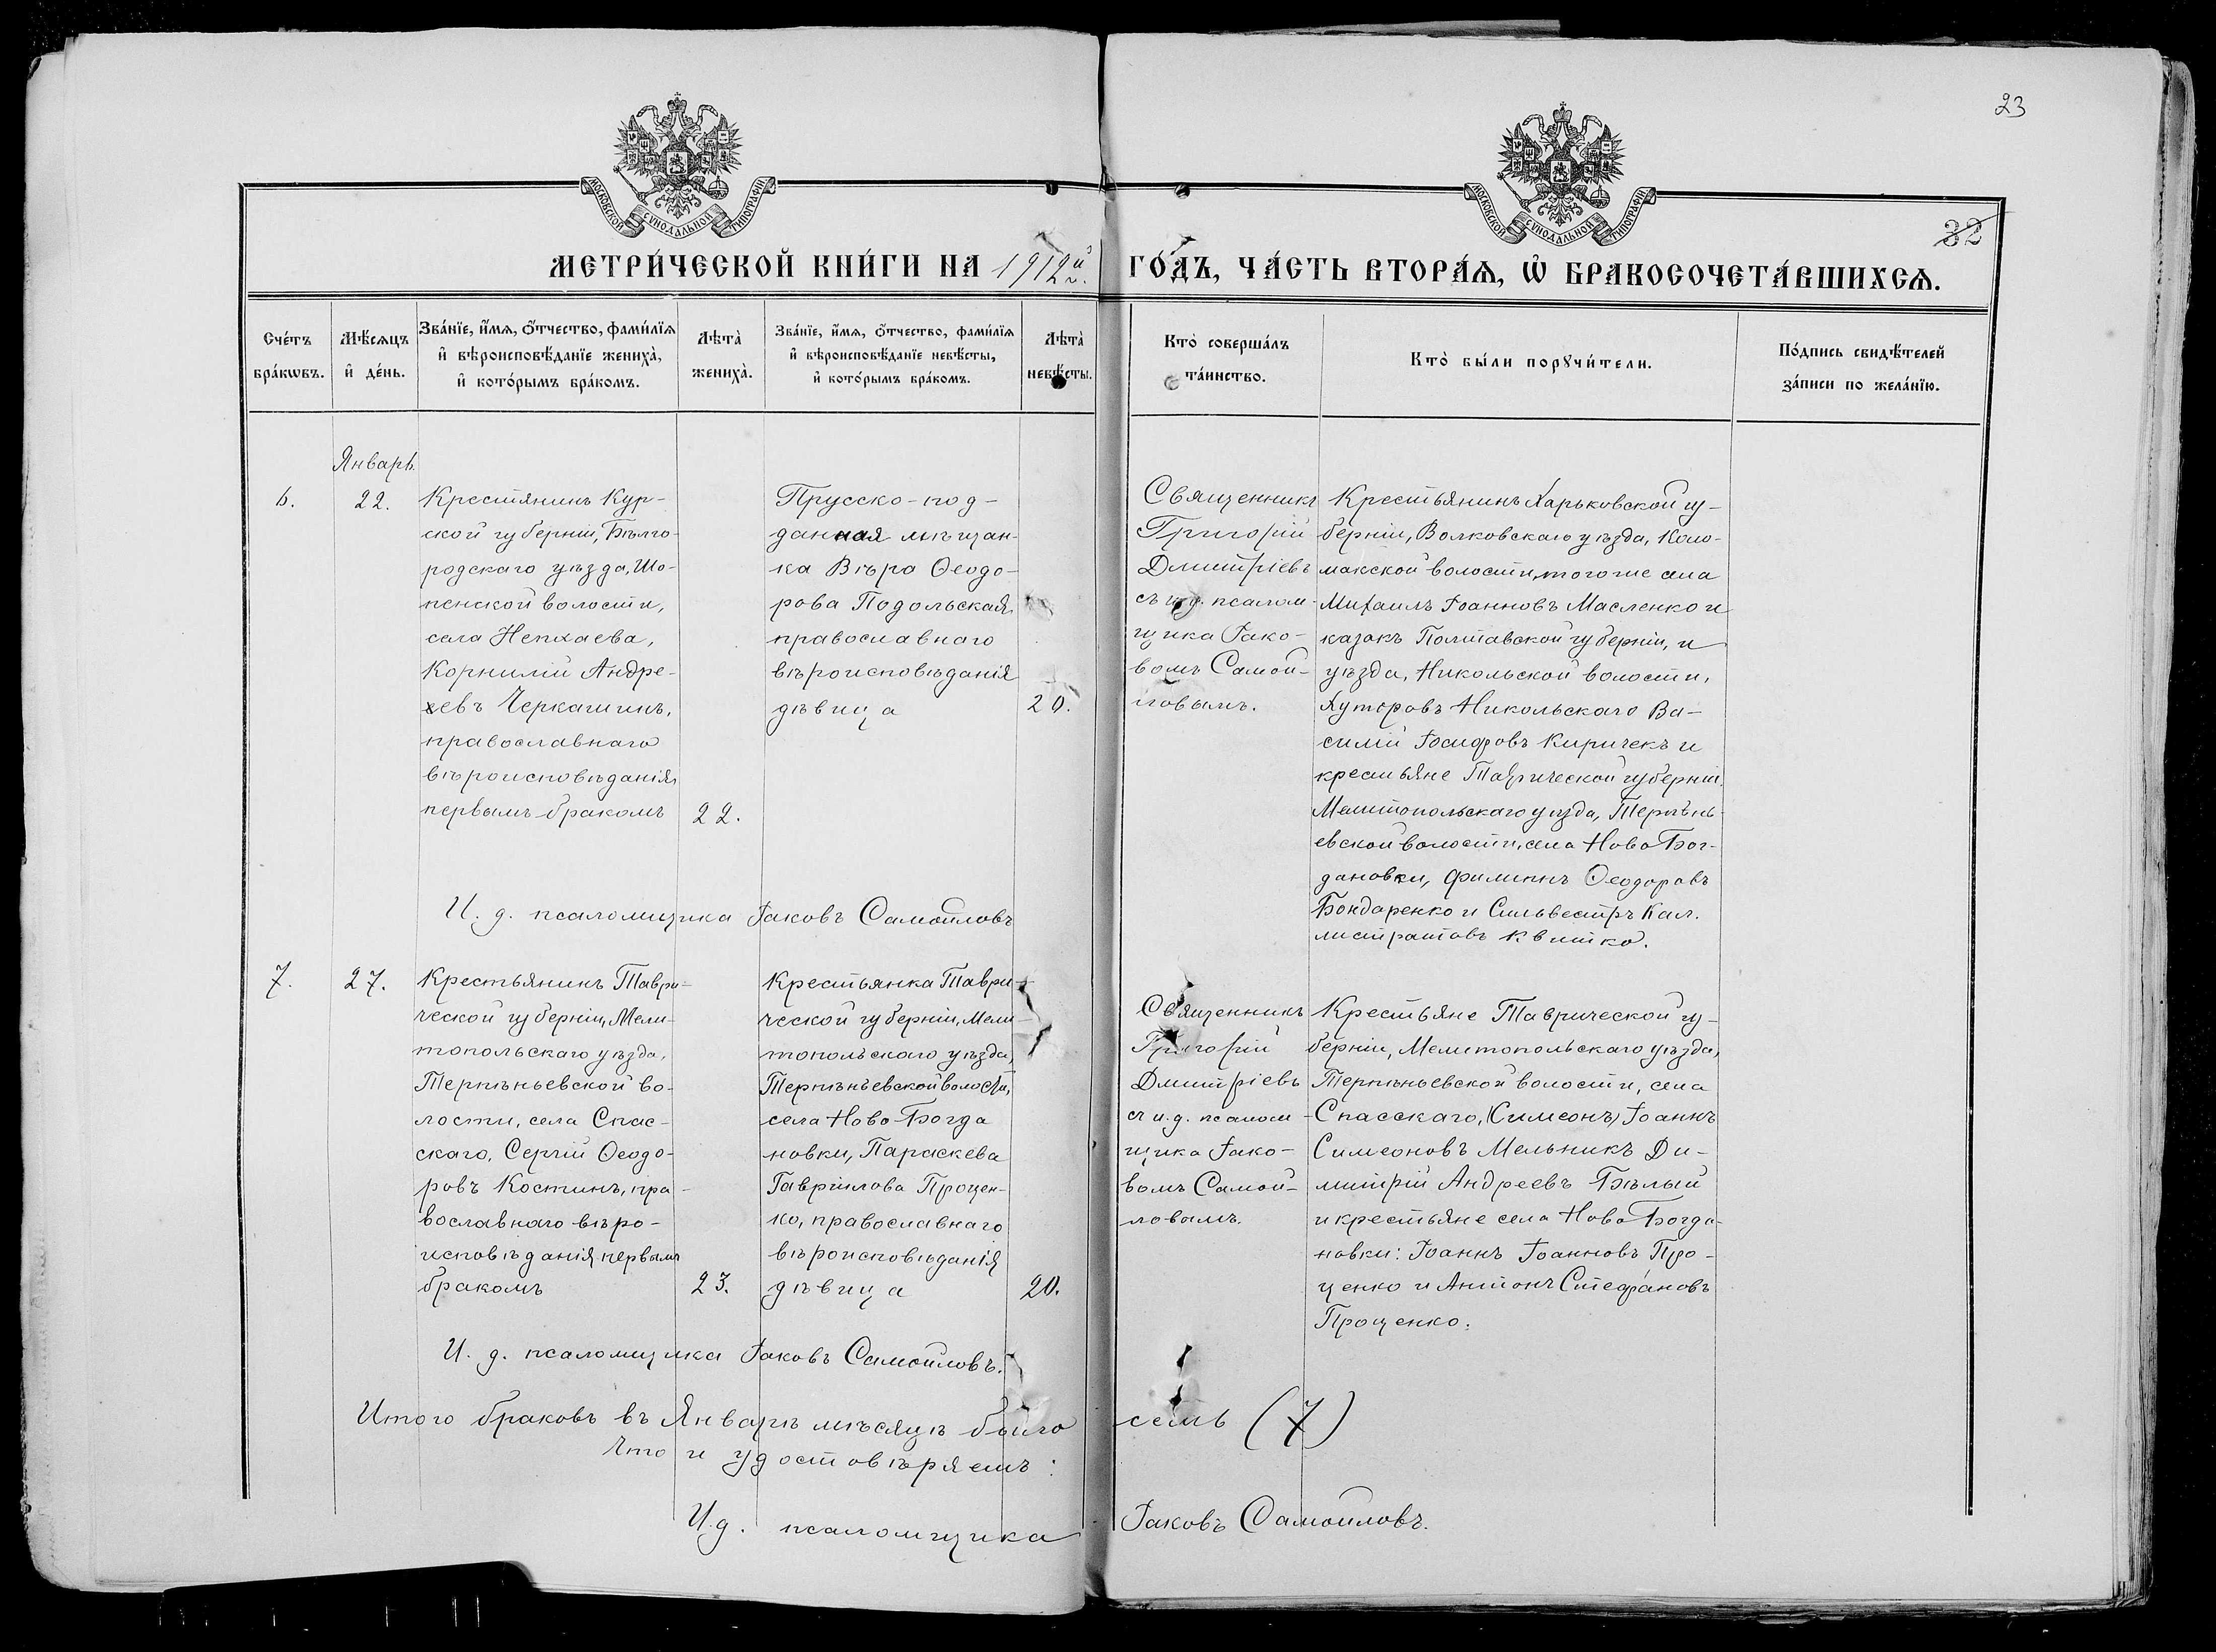 23
32
МОСКОВСКОЙ СУНОДАЛЬНОЙ ТИПОГРАФІИ
МОСКОВСКОЙ СУНОДАЛЬНОЙ ТИПОГРАФІИ
МЕТРИ́ЧЕСКОЙ КНИ́ГИ НА 1912й
ГО́ДЪ, ЧА́СТЬ ВТОРА́Ѧ, Ѡ҆ БРАКОСОЧЕТА́ВШИХСѦ.
Сче́тъ
бра́кѡвъ.
Мѣ́сѧцъ
и҆ де́нь.
Зва́нїе, и҆́мѧ, ѻ҆́тчество, фами́лїѧ
и҆ вѣроисповѣ́данїе жениха̀,
и҆ кото́рымъ бра́комъ.
Лѣта̀
жениха̀.
Зва́нїе, и҆́мѧ, ѻ҆́тчество, фами́лїѧ
и҆ вѣроисповѣ́данїе невѣ́сты,
и҆ кото́рымъ бра́комъ.
Лѣта̀
невѣ́сты.
Кто̀ соверша́лъ
та́инство.
Кто̀ бы́ли порꙋчи́тели.
По́дпись свидѣ́телей
за́писи по жела́нїю.
Январь.
6.
22.
Крестянинъ Кур-
ской губерніи, Бѣлго-
родскаго уѣзда, Шо-
пенской волости,
села Непхаева,
Корнилій Андре-
евъ Черкашинъ,
православнаго
вѣроисповѣданія,
первымъ бракомъ
22.
Прусско-под-
данная мѣщан-
ка Вѣра Ѳеодо-
рова Подольская,
православнаго
вѣроисповѣданія
дѣвица
20.
Священникъ
Григорій
Дмитріевъ
съ и.д. псалом-
щика Іако-
вомъ Самой-
ловымъ.
Крестьянинъ Харьковской гу-
берніи, Волковскаго уѣзда, Коло-
макской волости, того же села
Михаилъ Іоанновъ Масленко и
казакъ Полтавской губерніи, и
уѣзда, Никольской волости,
хуторовъ Никольскаго Ва-
силій Іосифовъ Киричекъ и
крестьяне Таврической губерніи,
Мелитопольскаго уѣзда, Терпѣнь-
евской волости, села Ново Бог-
дановки, Филиппъ Ѳеодоровъ
Бондаренко и Сильвестръ Кал-
листратовъ Квитко.
И. д. псаломщика Іаковъ Самойловъ
7.
27.
Крестьянинъ Таври-
ческой губерніи, Мели-
топольскаго уѣзда,
Терпѣньевской во-
лости, села Спас-
скаго, Сергій Ѳеодо-
ровъ Костинъ, пра-
вославнаго вѣро-
исповѣданія, первымъ
бракомъ
23.
Крестьянка Таври-
ческой губерніи, Мели-
топольскаго уѣзда,
Терпѣньевской волости,
села Ново-Богда
новки, Параскева
Гавріилова Процен-
ко, православнаго
вѣроисповѣданія
дѣвица
20.
Священникъ
Григорій
Дмитріевъ
съ и.д. псалом-
щика Іако-
вомъ Самой-
ловымъ.
Крестьяне Таврической гу-
берніи, Мелитопольскаго уѣзда,
Терпѣньевской волости, села
Спасскаго, (Симеонъ) Іоаннъ
Симеоновъ Мельникъ Ди-
митрій Андреевъ Бѣлый
и крестьяне села Ново Богда-
новки: Іоаннъ Іоанновъ Про-
ценко и Антонъ Стефановъ
Проценко.
И. д. псаломщика Іаковъ Самойловъ.
Итого браковъ въ Январѣ мѣсяцѣ было семь (7)
Что и удостовѣряемъ:
И.д. псаломщика Іаковъ Самойловъ.